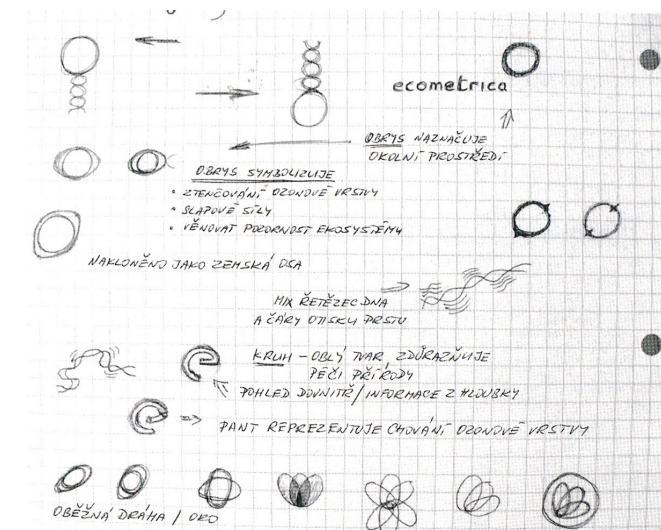 ecometrica
OBRYS NAZNAČUJE
OKOLNÍ PROSTŘEDÍ
OBRYS SYMBOLIZUJE
• ZTENČOVÁNÍ OZONOVÉ VRSTVY
• SLAPOVÉ SÍLY
• VĚNOVAT POZORNOST EKOSYSTÉMU
NAKLONĚNO JAKO ZEMSKÁ OSA
MIX ŘETĚZEC DNA
A ČÁRY OTISKU PRSTU
KRUH – OBLÝ TVAR ZDŮRAZŇUJE
PÉČI PŘÍRODY
POHLED DOVNITŘ / INFORMACE Z HLOUBKY
PANT REPREZENTUJE CHOVÁNÍ OZONOVÉ VRSTVY
OBĚŽNÁ DRÁHA / OKO